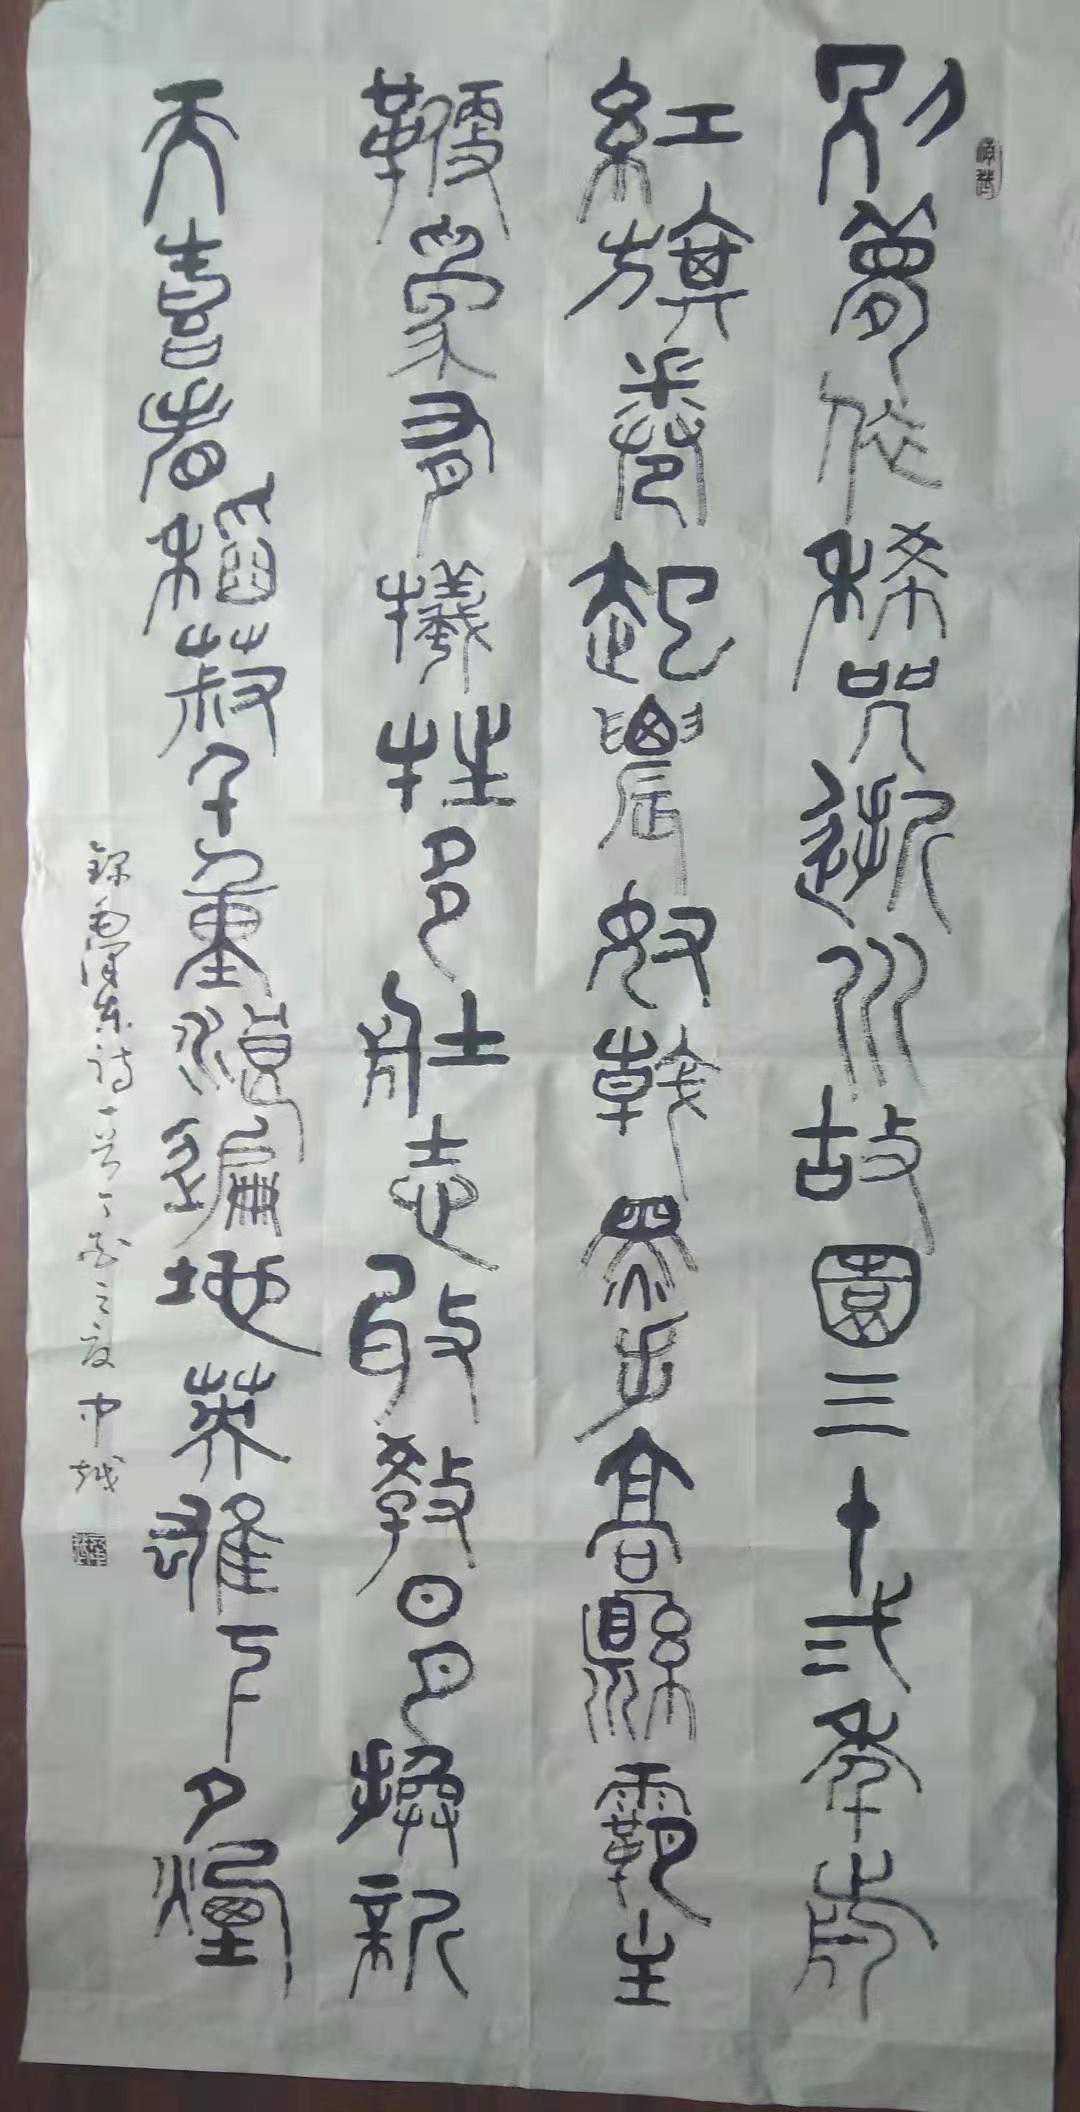 別夢依稀咒逝川故園三十弍年前
紅旗卷起農奴戟黑手高懸霸主
鞭為有犧牲多壯志敢教日月換新
天喜看稻菽千重浪遍地英雄下夕煙
錄毛澤東詩一首丁亥之夏中越